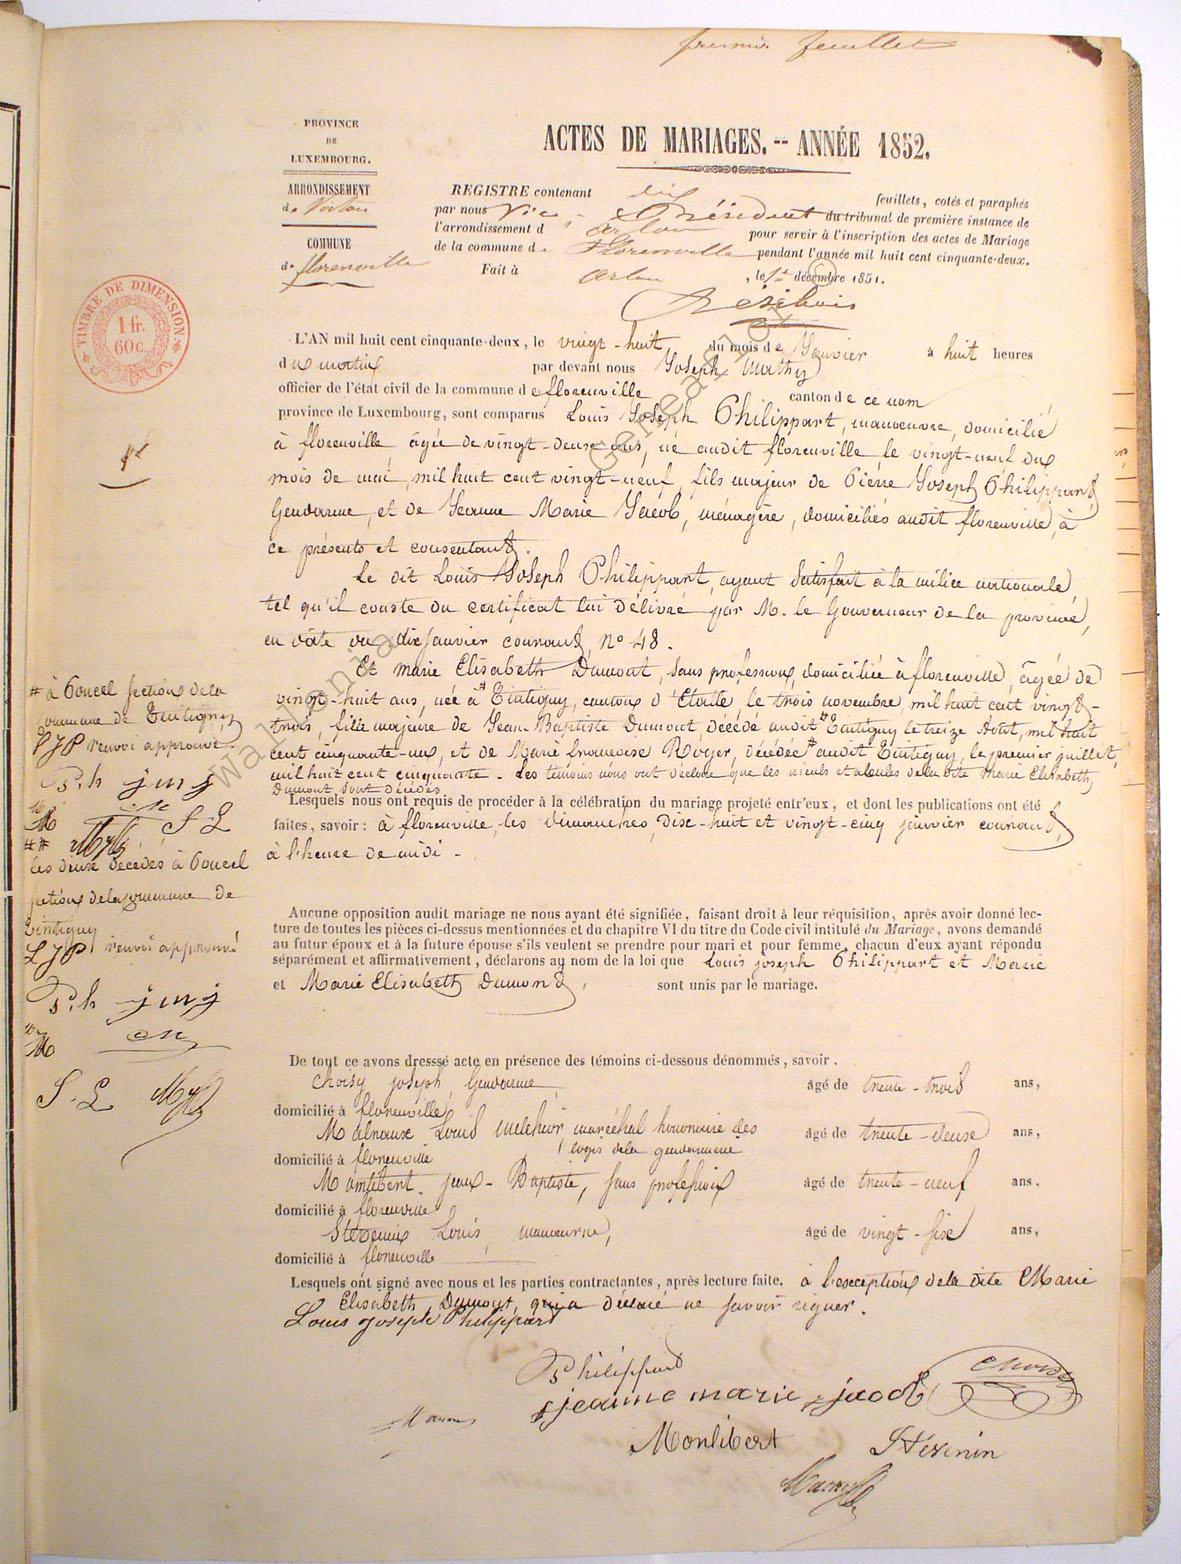 premier feuillet
PROVINCE
DE
LUXEMBOURG.
ARRONDISSEMENT
de Virton
COMMUNE
de florenville
ACTES DE MARIAGES. -- ANNÉE 1852.
REGISTRE contenant dix feuillets, cotés et paraphés
par nous Vice-Président du tribunal de première instance de
l'arrondissement d'arlon pour servir à l'inscription des actes de Mariage
de la commune de Florenville pendant l'année mil huit cent cinquante-deux.
Fait à arlon, le 1er décembre 1851.
TIMBRE DE DIMENSION
1 fr.
60c.
L'AN mil huit cent cinquante-deux, le vingt-huit du mois de Janvier à huit heures
du matin par devant nous Joseph Mathy
officier de l'état civil de la commune de florenville canton de ce nom
province de Luxembourg, sont comparus Louis Joseph Philippart, manoeuvre, domicilié
1er
à florenville âgée de vingt-deux ans, né audit florenville le vingt-neuf du
mois de mai mil huit cent vingt-neuf, fils majeur de Pierre Joseph Philippart,
Gendarme, et de Jeanne Marie Jacob, ménagère, domiciliés audit florenville, à
ce présents et consentants.
Le dit Louis Joseph Philippart, ayant satisfait à la milice nationale,
tel qu'il conste du certificat lui délivré par M. le Gouverneur de la province,
en date du dix Janvier courant, n° 48.
Et marie Elisabeth Dumont, sans profession, domiciliée à florenville, âgée de
vingt-huit ans, née à # Tintigny, canton d'Etalle le trois novembre, mil huit cent vingt-
trois, fille majeure de Jean Baptiste Dumont décédé audit ## Tintigny le treize Août, mil huit
cent cinquante-un, et de Marie françoise Royer, décédée ## audit Tintigny, le premier juillet,
mil huit cent cinquante. Les témoins nous ont déclaré que les aïeuls et aïeules de la dite Marie Elisabeth
Dumont sont décédés
# à Poncel section de la
commune de Tintigny
LJP renvoi approuvé.
P. h jmj
S L
##
les deux décédés à Poncel
section de la commune de
Tintigny
LJP renvoi approuvé
P. h jmj
S. L
Lesquels nous ont requis de procéder à la célébration du mariage projeté entr'eux, et dont les publications ont été
faites, savoir: à florenville, les dimanches, dix-huit et vingt-cinq janvier courant,
à l'heure de midi.
Aucune opposition audit mariage ne nous ayant été signifiée, faisant droit à leur réquisition, après avoir donné lec-
ture de toutes les pièces ci-dessus mentionnées et du chapitre VI du titre du Code civil intitulé du Mariage, avons demandé
au futur époux et à la future épouse s'ils veulent se prendre pour mari et pour femme, chacun d'eux ayant répondu
séparément et affirmativement, déclarons au nom de la loi que Louis joseph Philippart et Marie
et Marie Elisabeth Dumont, sont unis par le mariage.
De tout ce avons dresssé acte en présence des témoins ci-dessous dénommés, savoir.
Choisy joseph, Gendarme, âgé de trente-trois ans,
domicilié à florenville,
Louis Melchior maréchal honoraire des âgé de trente-deux ans,
logis de la gendarmerie
domicilié à florenville
Monlibert jean-Baptiste, sans profession âgé de trente-neuf ans.
domicilié à florenville
Stévenin Louis, manoeuvre, âgé de vingt-six ans,
domicilié à florenville
Lesquels ont signé avec nous et les parties contractantes, après lecture faite. à l'exception de la dite Marie
Elisabeth Dumont, qui a déclaré ne savoir signer.
Louis joseph Philippart
Philippart
Choisy
jeanne marie jacob
Monlibert
Stévenin
Wallonia Généalogie